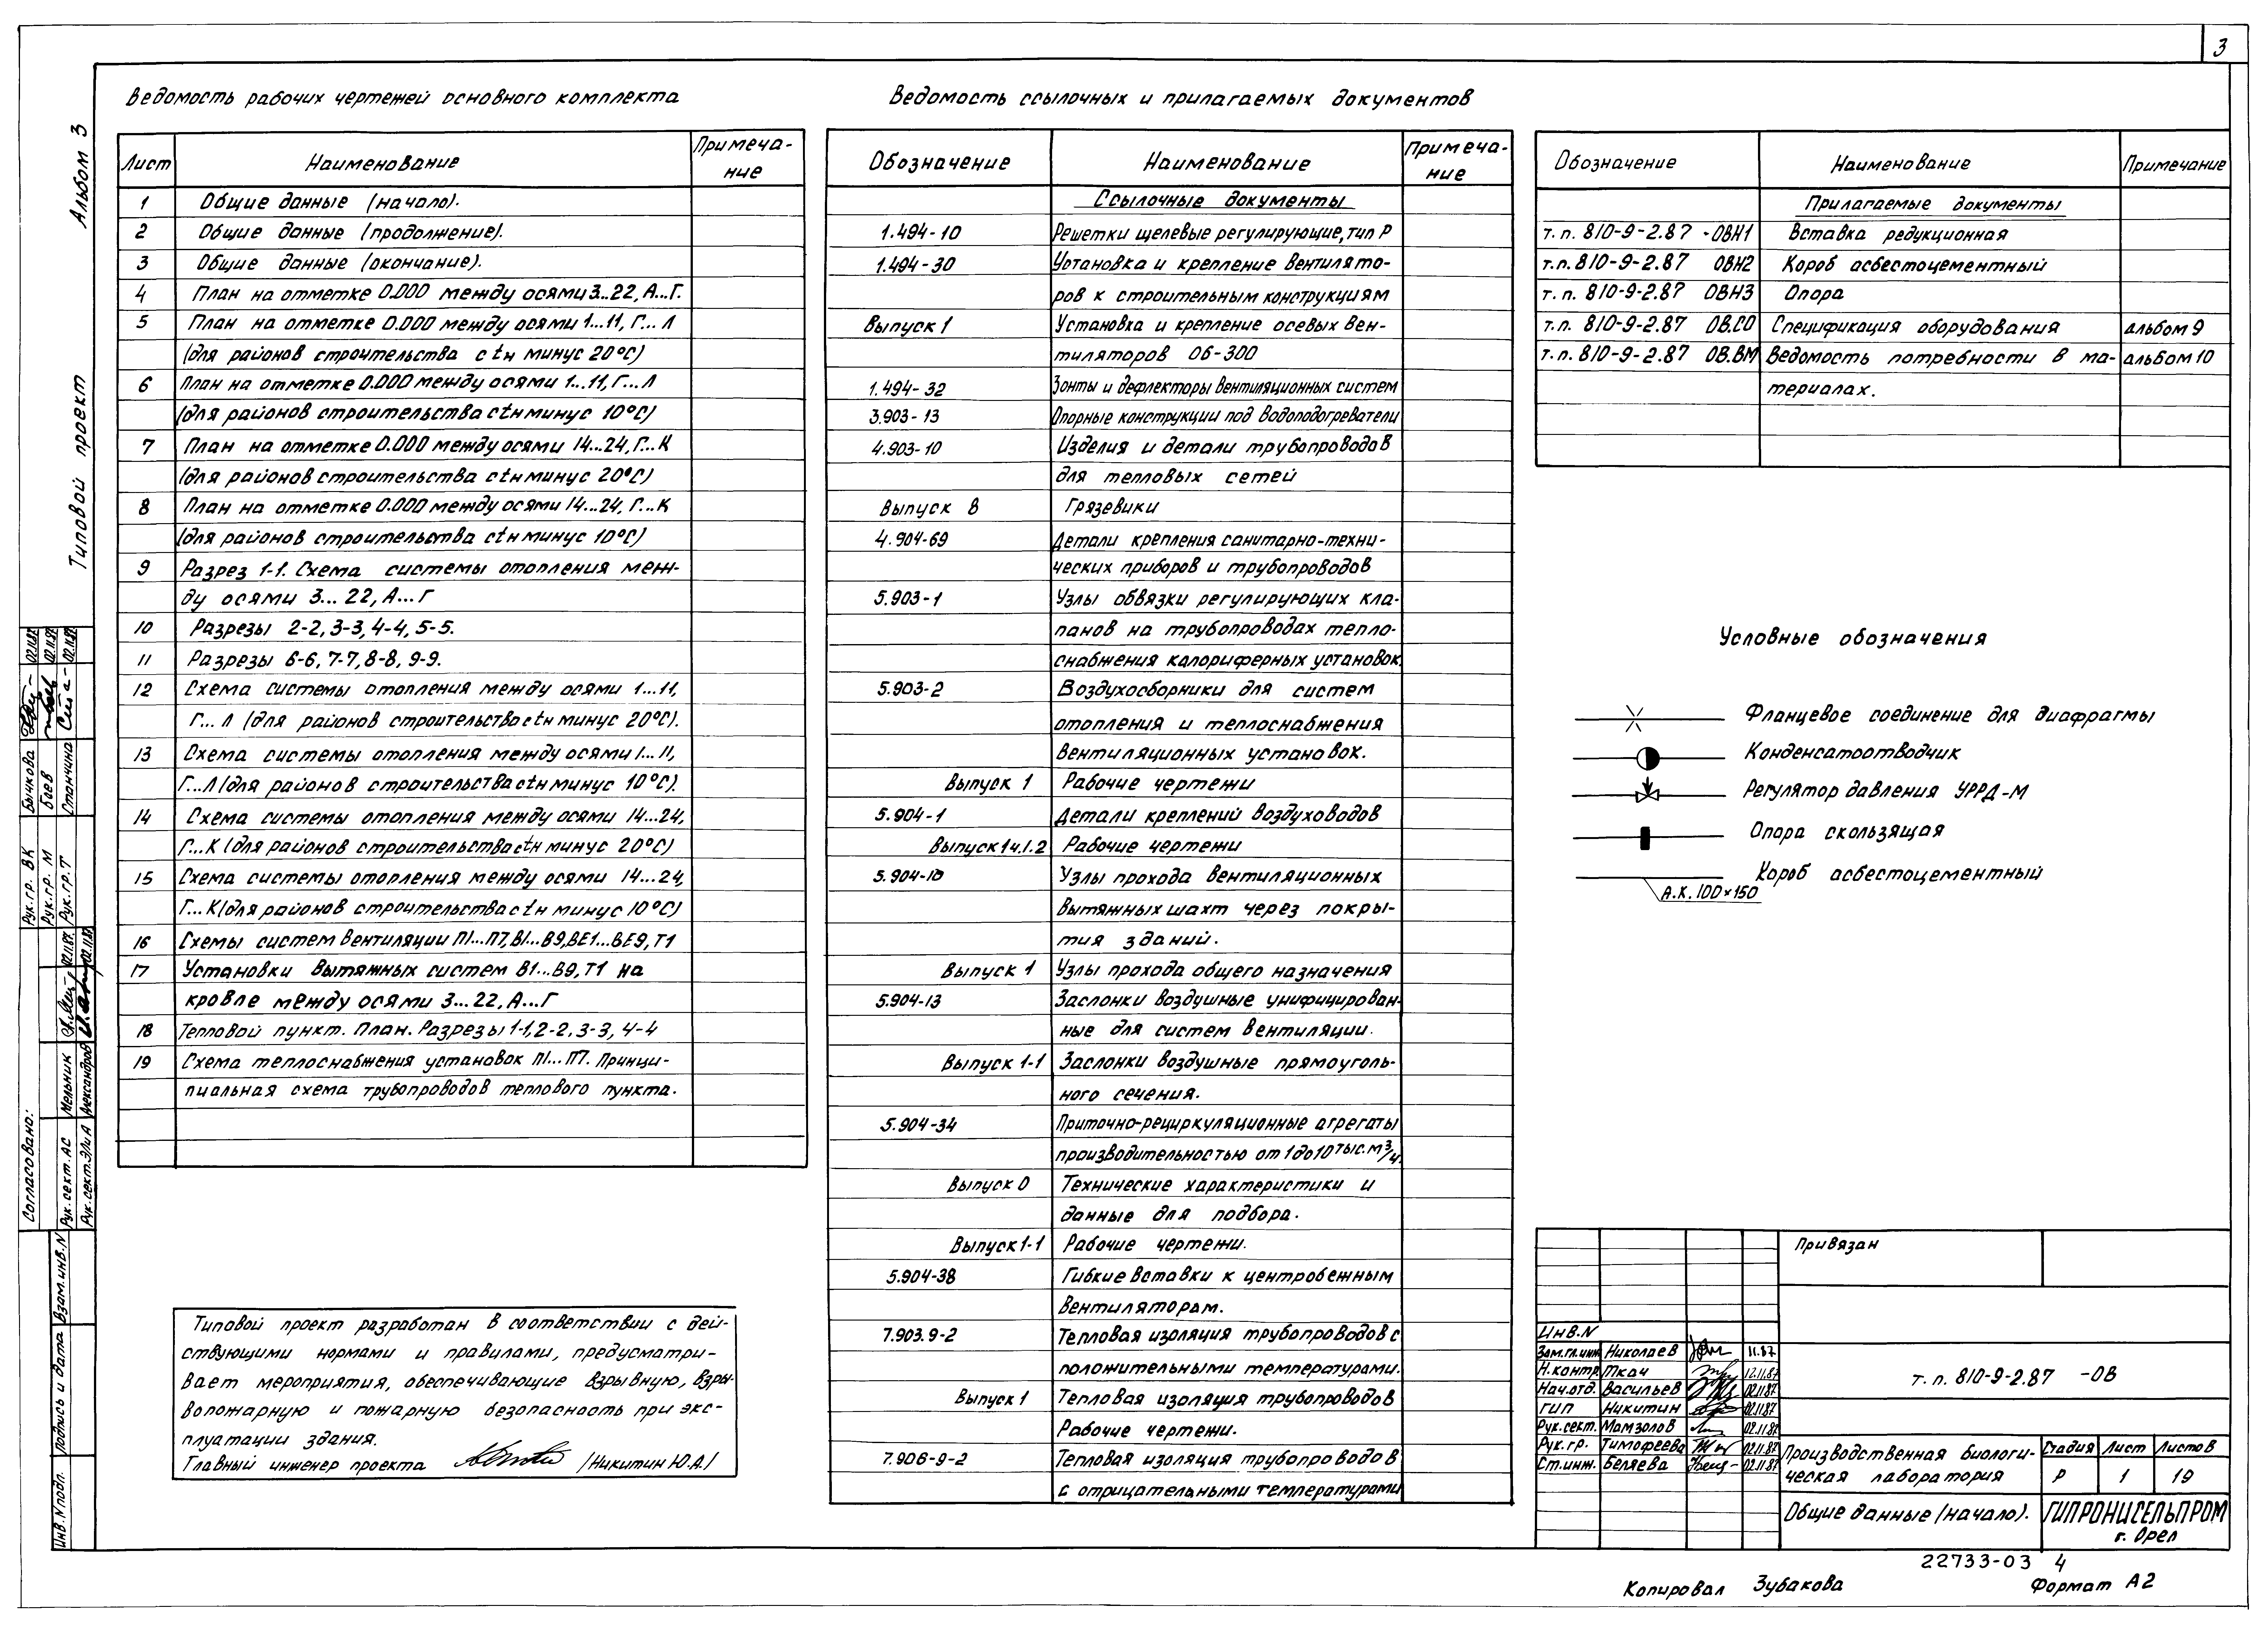 3
Альбом 3
Типовой проект
Ведомость рабочих чертежей основного комплекта
Лист Наименование Примеча-
ние
1 Общие данные (начало).
2 Общие данные (продолжение).
3 Общие данные (окончание).
4 План на отметке 0.000 между осями 3...22, А...Г.
5 План на отметке 0.000 между осями 1...11, Г...Л
(для районов строительства с tн минус 20°С)
6 План на отметке 0.000 между осями 1...11, Г...Л
(для районов строительства с tн минус 10°С)
7 План на отметке 0.000 между осями 14...24, Г...К
(для районов строительства с tн минус 20°С)
8 План на отметке 0.000 между осями 14...24, Г...К
(для районов строительства с tн минус 10°С)
9 Разрез 1-1. Схема системы отопления меж-
ду осями 3...22, А...Г
10 Разрезы 2-2, 3-3, 4-4, 5-5.
11 Разрезы 6-6, 7-7, 8-8, 9-9.
12 Схема системы отопления между осями 1...11,
Г...Л (для районов строительства с tн минус 20°С).
13 Схема системы отопления между осями 1...11,
Г...Л (для районов строительства с tн минус 10°С).
14 Схема системы отопления между осями 14...24,
Г...К (для районов строительства с tн минус 20°С)
15 Схема системы отопления между осями 14...24,
Г...К (для районов строительства с tн минус 10°С)
16 Схемы систем вентиляции П1...П7, В1...В9, ВЕ1...ВЕ9, Т1
17 Установки вытяжных систем В1...В9, Т1 на
кровле между осями 3...22, А...Г
18 Тепловой пункт. План. Разрезы 1-1, 2-2, 3-3, 4-4
19 Схема теплоснабжения установок П1...П7. Принци-
пиальная схема трубопроводов теплового пункта.
Типовой проект разработан в соответствии с дей-
ствующими нормами и правилами, предусматри-
вает мероприятия, обеспечивающие взрывную, взры-
вопожарную и пожарную безопасность при экс-
плуатации здания.
Главный инженер проекта /Никитин Ю.А/
Ведомость ссылочных и прилагаемых документов
Обозначение Наименование Примеча-
ние
Ссылочные документы
1.494-10 Решетки щелевые регулирующие, тип Р
1.494-30 Установка и крепление вентилято-
ров к строительным конструкциям
Выпуск 1 Установка и крепление осевых вен-
тиляторов 06-300
1.494-32 Зонты и дефлекторы вентиляционных систем
3.903-13 Опорные конструкции под водоподогреватели
4.903-10 Изделия и детали трубопроводов
для тепловых сетей
Выпуск 8 Грязевики
4.904-69 Детали крепления санитарно-техни-
ческих приборов и трубопроводов
5.903-1 Узлы обвязки регулирующих кла-
панов на трубопроводах тепло-
снабжения калориферных установок.
5.903-2 Воздухосборники для систем
отопления и теплоснабжения
вентиляционных установок.
Выпуск 1 Рабочие чертежи
5.904-1 Детали креплений воздуховодов
Выпуск 1 ч.1.2 Рабочие чертежи
5.904-10 Узлы прохода вентиляционных
вытяжных шахт через покры-
тия зданий.
Выпуск 1 Узлы прохода общего назначения
5.904-13 Заслонки воздушные унифицирован-
ные для систем вентиляции.
Выпуск 1-1 Заслонки воздушные прямоуголь-
ного сечения.
5.904-34 Приточно-рециркуляционные агрегаты
производительностью от 1 до 10 тыс. м³/ч.
Выпуск 0 Технические характеристики и
данные для подбора.
Выпуск 1-1 Рабочие чертежи.
5.904-38 Гибкие вставки к центробежным
вентиляторам.
7.903.9-2 Тепловая изоляция трубопроводов с
положительными температурами.
Выпуск 1 Тепловая изоляция трубопроводов
Рабочие чертежи.
7.906-9-2 Тепловая изоляция трубопроводов
с отрицательными температурами
Обозначение Наименование Примечание
Прилагаемые документы
т.п. 810-9-2.87 -ОВН1 Вставка редукционная
т.п. 810-9-2.87 ОВН2 Короб асбестоцементный
т.п. 810-9-2.87 ОВН3 Опора
т.п. 810-9-2.87 ОВ.СО Спецификация оборудования альбом 9
т.п. 810-9-2.87 ОВ.ВМ Ведомость потребности в ма- альбом 10
териалах.
Условные обозначения
Фланцевое соединение для диафрагмы
Конденсатоотводчик
Регулятор давления УРРД-М
Опора скользящая
Короб асбестоцементный
А.К. 100×150
Привязан
Инв.N
Зам.гл.инж. Николаев 11.87
Н.контр. Ткач 12.11.87
Нач.отд. Васильев 02.11.87
ГИП Никитин 02.11.87
Рук.сект. Мамзолов 02.11.87
Рук.гр. Тимофеева 02.11.87
Ст.инж. Беляева 02.11.87
т.п. 810-9-2.87 -ОВ
Производственная биологи-
ческая лаборатория
Стадия Лист Листов
Р 1 19
Общие данные (начало).
ГИПРОНИСЕЛЬПРОМ
г. Орел
22733-03 4
Копировал Зубакова Формат А2
Согласовано:
Рук.гр. ВК Бычкова 02.11.87
Рук.гр. М Боев 02.11.87
Рук.гр. Т Станчина 02.11.87
Рук.сект. АС Мельник 02.11.87
Рук.сект. ЭЛиА Александров 02.11.87
Взам.инв.N
Подпись и дата
Инв.N подл.